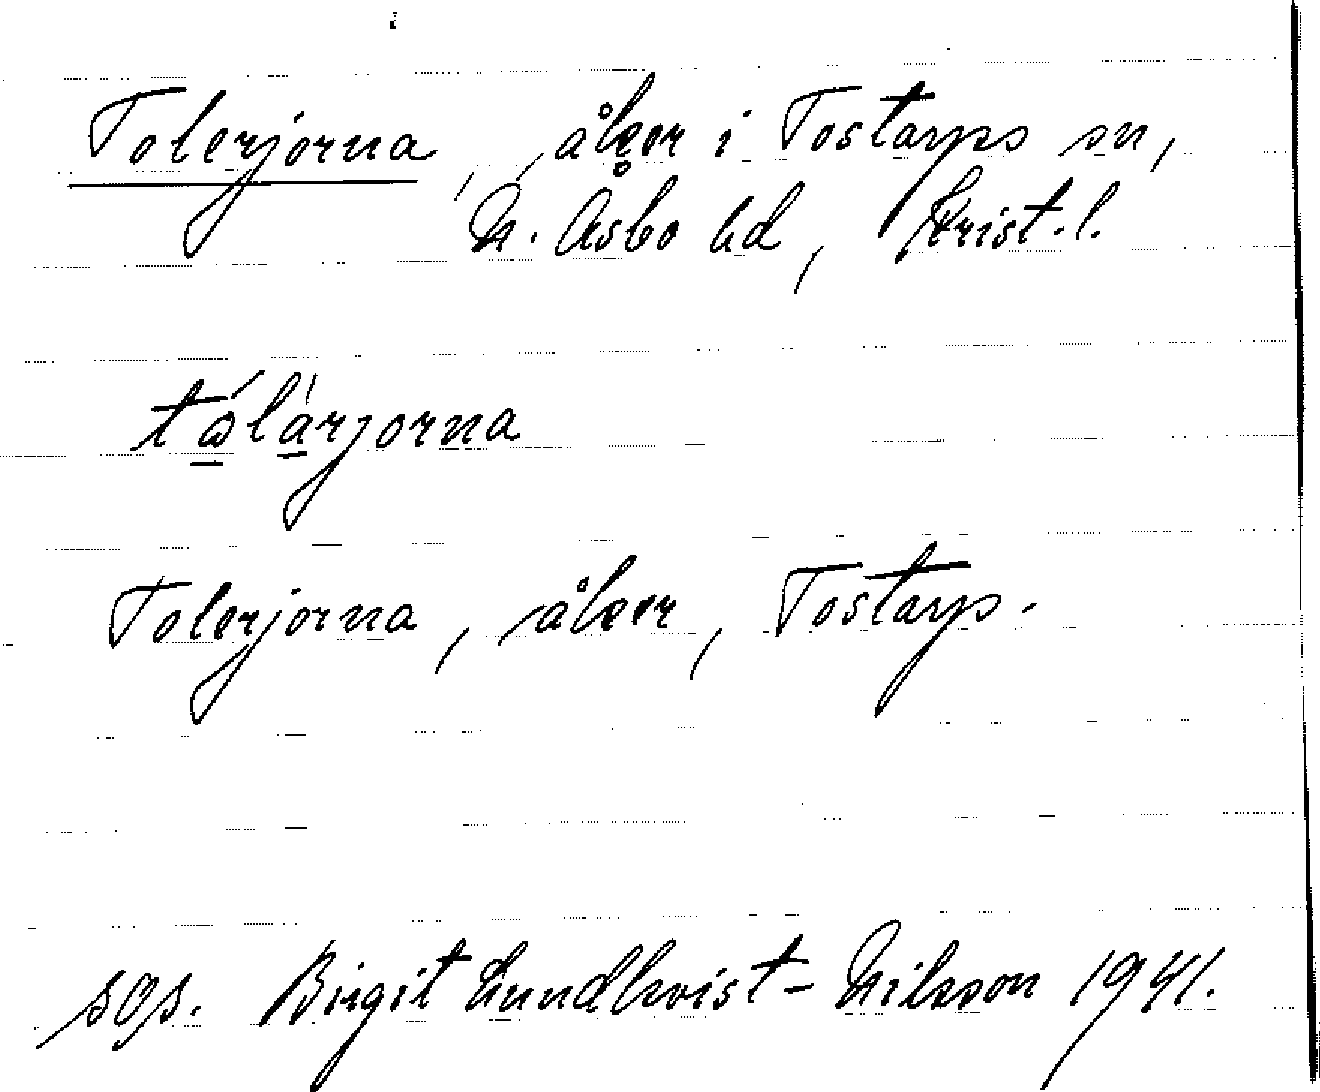 Tolerjorna, åker i Tostarps sn,
N. Åsbo hd, Krist. l.
tώ̱ḻa̱̍rjorna
Tolerjorna, åker, Tostarp.
Birgit Lundkvist-Nilsson 1941.